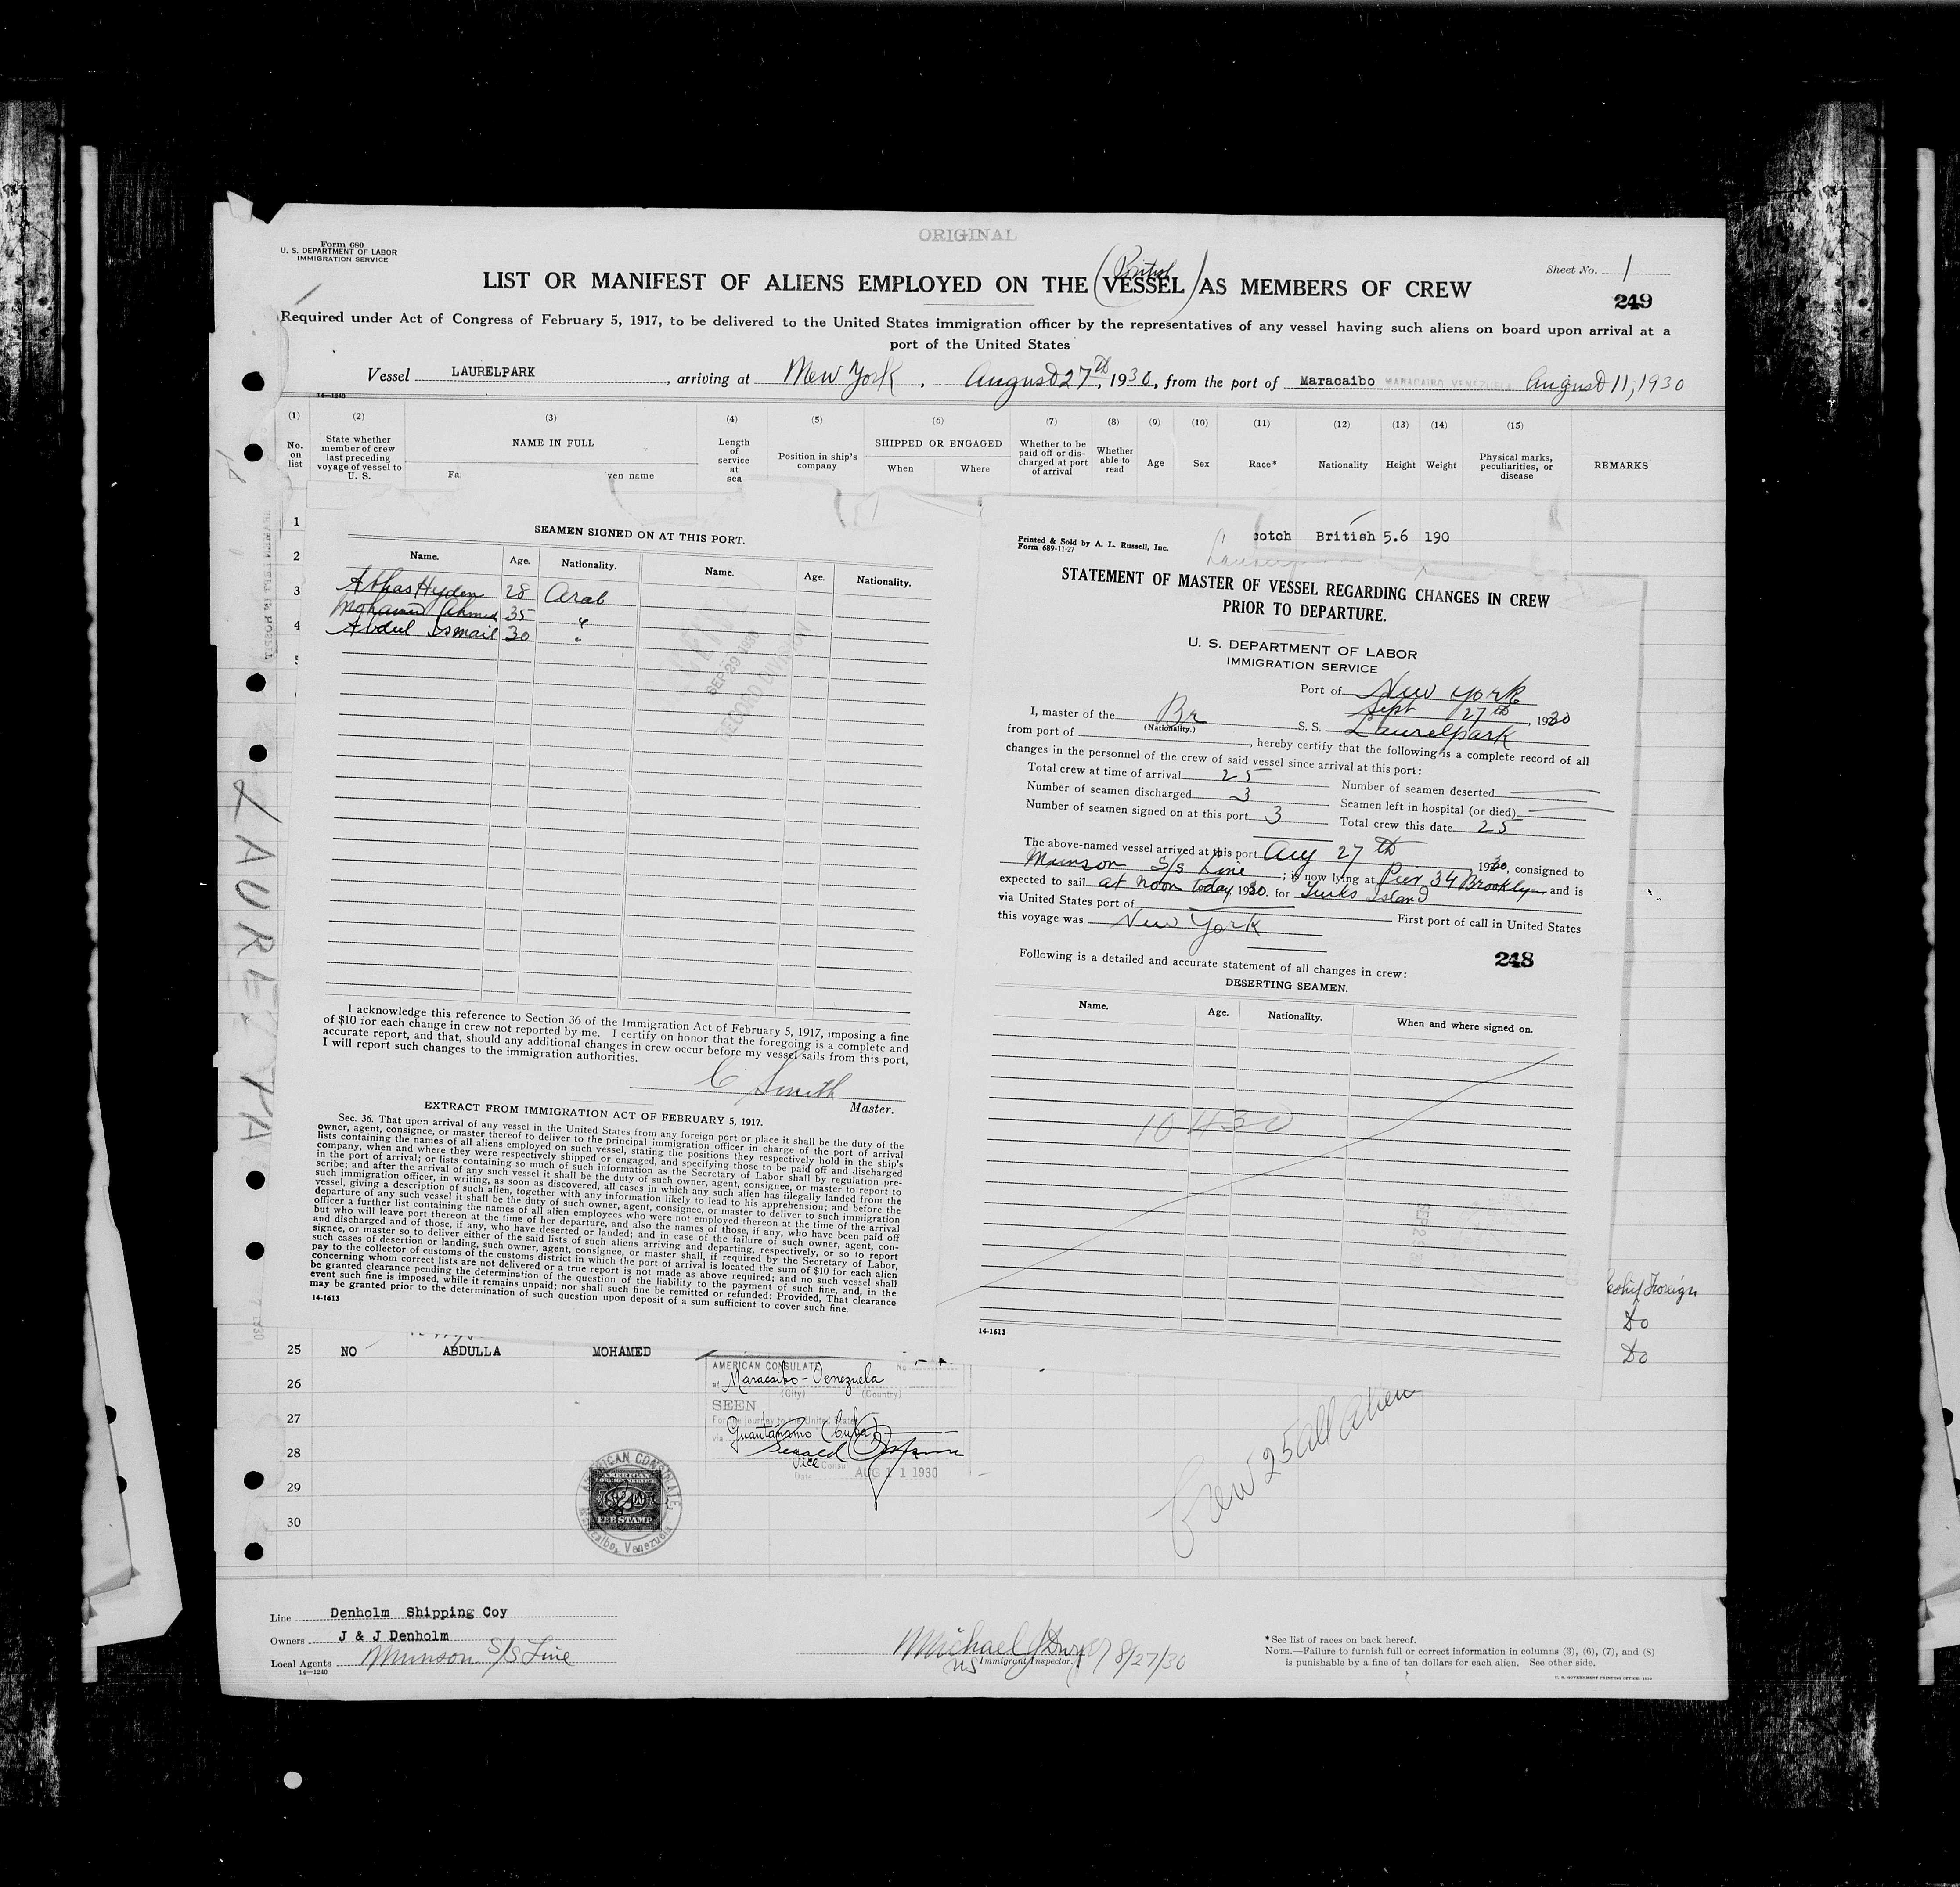 ORIGINAL
Form 680
U. S. DEPARTMENT OF LABOR
IMMIGRATION SERVICE
Sheet No. 1
249
LIST OR MANIFEST OF ALIENS EMPLOYED ON THE (British VESSEL) AS MEMBERS OF CREW
Required under Act of Congress of February 5, 1917, to be delivered to the United States immigration officer by the representatives of any vessel having such aliens on board upon arrival at a
port of the United States
Vessel LAURELPARK, arriving at New York, August 27th, 1930, from the port of Maracaibo MARACAIBO VENEZUELA August 11, 1930
14—1240
(1) (2) (3) (4) (5) (6) (7) (8) (9) (10) (11) (12) (13) (14) (15)
No. on list
State whether member of crew last preceding voyage of vessel to U. S.
NAME IN FULL
Fa ven name
Length of service at sea
Position in ship's company
SHIPPED OR ENGAGED
When Where
Whether to be paid off or discharged at port of arrival
Whether able to read
Age
Sex
Race*
Nationality
Height
Weight
Physical marks, peculiarities, or disease
REMARKS
1
2
3
4
cotch British 5.6 190
SEAMEN SIGNED ON AT THIS PORT.
Name. Age. Nationality. Name. Age. Nationality.
Athas Hyden 28 Arab
Mohamed Ahmed 35 "
Abdul Ismail 30 "
SEP 29 1930
RECORD DIVISION
I acknowledge this reference to Section 36 of the Immigration Act of February 5, 1917, imposing a fine
of $10 for each change in crew not reported by me. I certify on honor that the foregoing is a complete and
accurate report, and that, should any additional changes in crew occur before my vessel sails from this port,
I will report such changes to the immigration authorities.
C Smith
Master.
EXTRACT FROM IMMIGRATION ACT OF FEBRUARY 5, 1917.
Sec. 36. That upon arrival of any vessel in the United States from any foreign port or place it shall be the duty of the
owner, agent, consignee, or master thereof to deliver to the principal immigration officer in charge of the port of arrival
lists containing the names of all aliens employed on such vessel, stating the positions they respectively hold in the ship's
company, when and where they were respectively shipped or engaged, and specifying those to be paid off and discharged
in the port of arrival; or lists containing so much of such information as the Secretary of Labor shall by regulation pre-
scribe; and after the arrival of any such vessel it shall be the duty of such owner, agent, consignee, or master to report to
such immigration officer, in writing, as soon as discovered, all cases in which any such alien has illegally landed from the
vessel, giving a description of such alien, together with any information likely to lead to his apprehension; and before the
departure of any such vessel it shall be the duty of such owner, agent, consignee, or master to deliver to such immigration
officer a further list containing the names of all alien employees who were not employed thereon at the time of the arrival
but who will leave port thereon at the time of her departure, and also the names of those, if any, who have been paid off
and discharged and of those, if any, who have deserted or landed; and in case of the failure of such owner, agent, con-
signee, or master so to deliver either of the said lists of such aliens arriving and departing, respectively, or so to report
such cases of desertion or landing, such owner, agent, consignee, or master shall, if required by the Secretary of Labor,
pay to the collector of customs of the customs district in which the port of arrival is located the sum of $10 for each alien
concerning whom correct lists are not delivered or a true report is not made as above required; and no such vessel shall
be granted clearance pending the determination of the question of the liability to the payment of such fine, and, in the
event such fine is imposed, while it remains unpaid; nor shall such fine be remitted or refunded: Provided, That clearance
may be granted prior to the determination of such question upon deposit of a sum sufficient to cover such fine.
14-1613
Printed & Sold by A. L. Russell, Inc.
Form 689-11-27
STATEMENT OF MASTER OF VESSEL REGARDING CHANGES IN CREW
PRIOR TO DEPARTURE.
U. S. DEPARTMENT OF LABOR
IMMIGRATION SERVICE
Port of New York
Sept 27th, 1930
I, master of the Br S. S. Laurelpark
(Nationality.)
from port of , hereby certify that the following is a complete record of all
changes in the personnel of the crew of said vessel since arrival at this port:
Total crew at time of arrival 25 Number of seamen deserted
Number of seamen discharged 3 Seamen left in hospital (or died)
Number of seamen signed on at this port 3 Total crew this date 25
The above-named vessel arrived at this port Aug 27th 1930, consigned to
Munson S/S Line ; is now lying at Pier 34 Brooklyn and is
expected to sail at noon today 1930. for Turks Island
via United States port of
First port of call in United States
this voyage was New York
248
Following is a detailed and accurate statement of all changes in crew:
DESERTING SEAMEN.
Name. Age. Nationality. When and where signed on.
10430
14-1613
Foreign
Do
Do
25 NO ABDULLA MOHAMED
26
27
28
29
30
AMERICAN CONSULATE No.
at Maracaibo - Venezuela
(City) (Country)
SEEN
For the journey to the United States
via Guantanamo (Cuba)
Vice Consul
Date AUG 11 1930
AMERICAN CONSULATE
Maracaibo, Venezuela
AMERICAN FOREIGN SERVICE
FEE STAMP
Crew 25 all alien
LAURELPA
Line Denholm Shipping Coy
Owners J & J Denholm
Local Agents Munson S/S Line
14—1240
Michael J 8/27/30
US Immigrant Inspector.
*See list of races on back hereof.
NOTE.—Failure to furnish full or correct information in columns (3), (6), (7), and (8)
is punishable by a fine of ten dollars for each alien. See other side.
U. S. GOVERNMENT PRINTING OFFICE